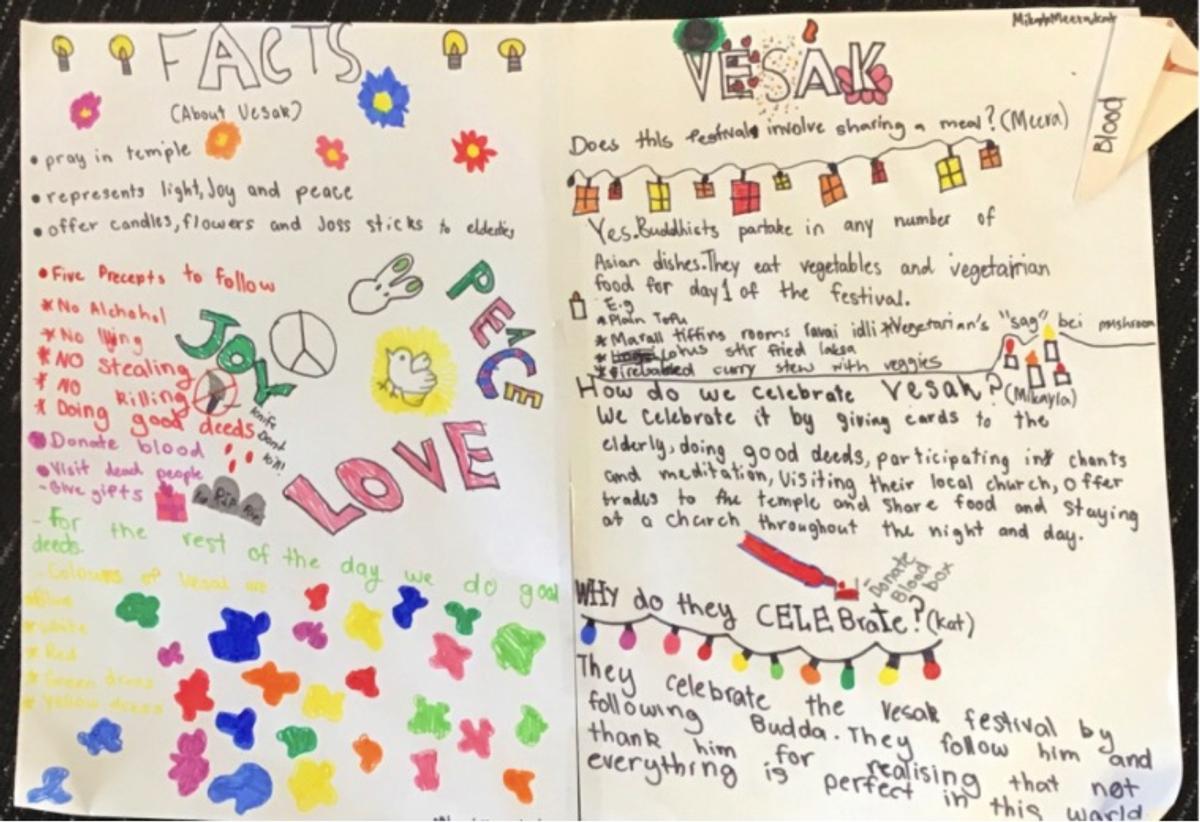 FACTS
(About Vesak)
• pray in temple
• represents light, Joy and peace
• offer candles, flowers and Joss sticks to
• Five Precepts to follow
* No Alchohol
* No lying
* NO Stealing
* NO killing
* Doing good deeds
JOY
PEACE
LOVE
knife
Dont
kill!
• Donate blood
• Visit dead people
- Give gifts
RIP
- For the rest of the day we do good
deeds.
- Colours of Vesak are
* Blue
* white
* Red
* Green dress
* Yellow dress
VESAK
Blood
Does this festival involve sharing a meal? (Meera)
Yes. Buddhists partake in any number of
Asian dishes. They eat vegetables and vegetairian
food for day 1 of the festival.
E.g
* Plain Tofu
* Marall tiffins rooms ravai idli * Vegetarian's "sag" bei mushroom
* Lohus stir fried laksa
* curry stew with veggies
How do we celebrate Vesak? (Mikayla)
We celebrate it by giving cards to the
elderly, doing good deeds, participating in chants
and meditation, Visiting their local church, offer
trades to the temple and Share food and Staying
at a church throughout the night and day.
Donate
Blood
box
WHY do they CELEBrate? (Kat)
They celebrate the Vesak festival by
following Budda. They follow him and
thank him for realising that not
everything is perfect in this world